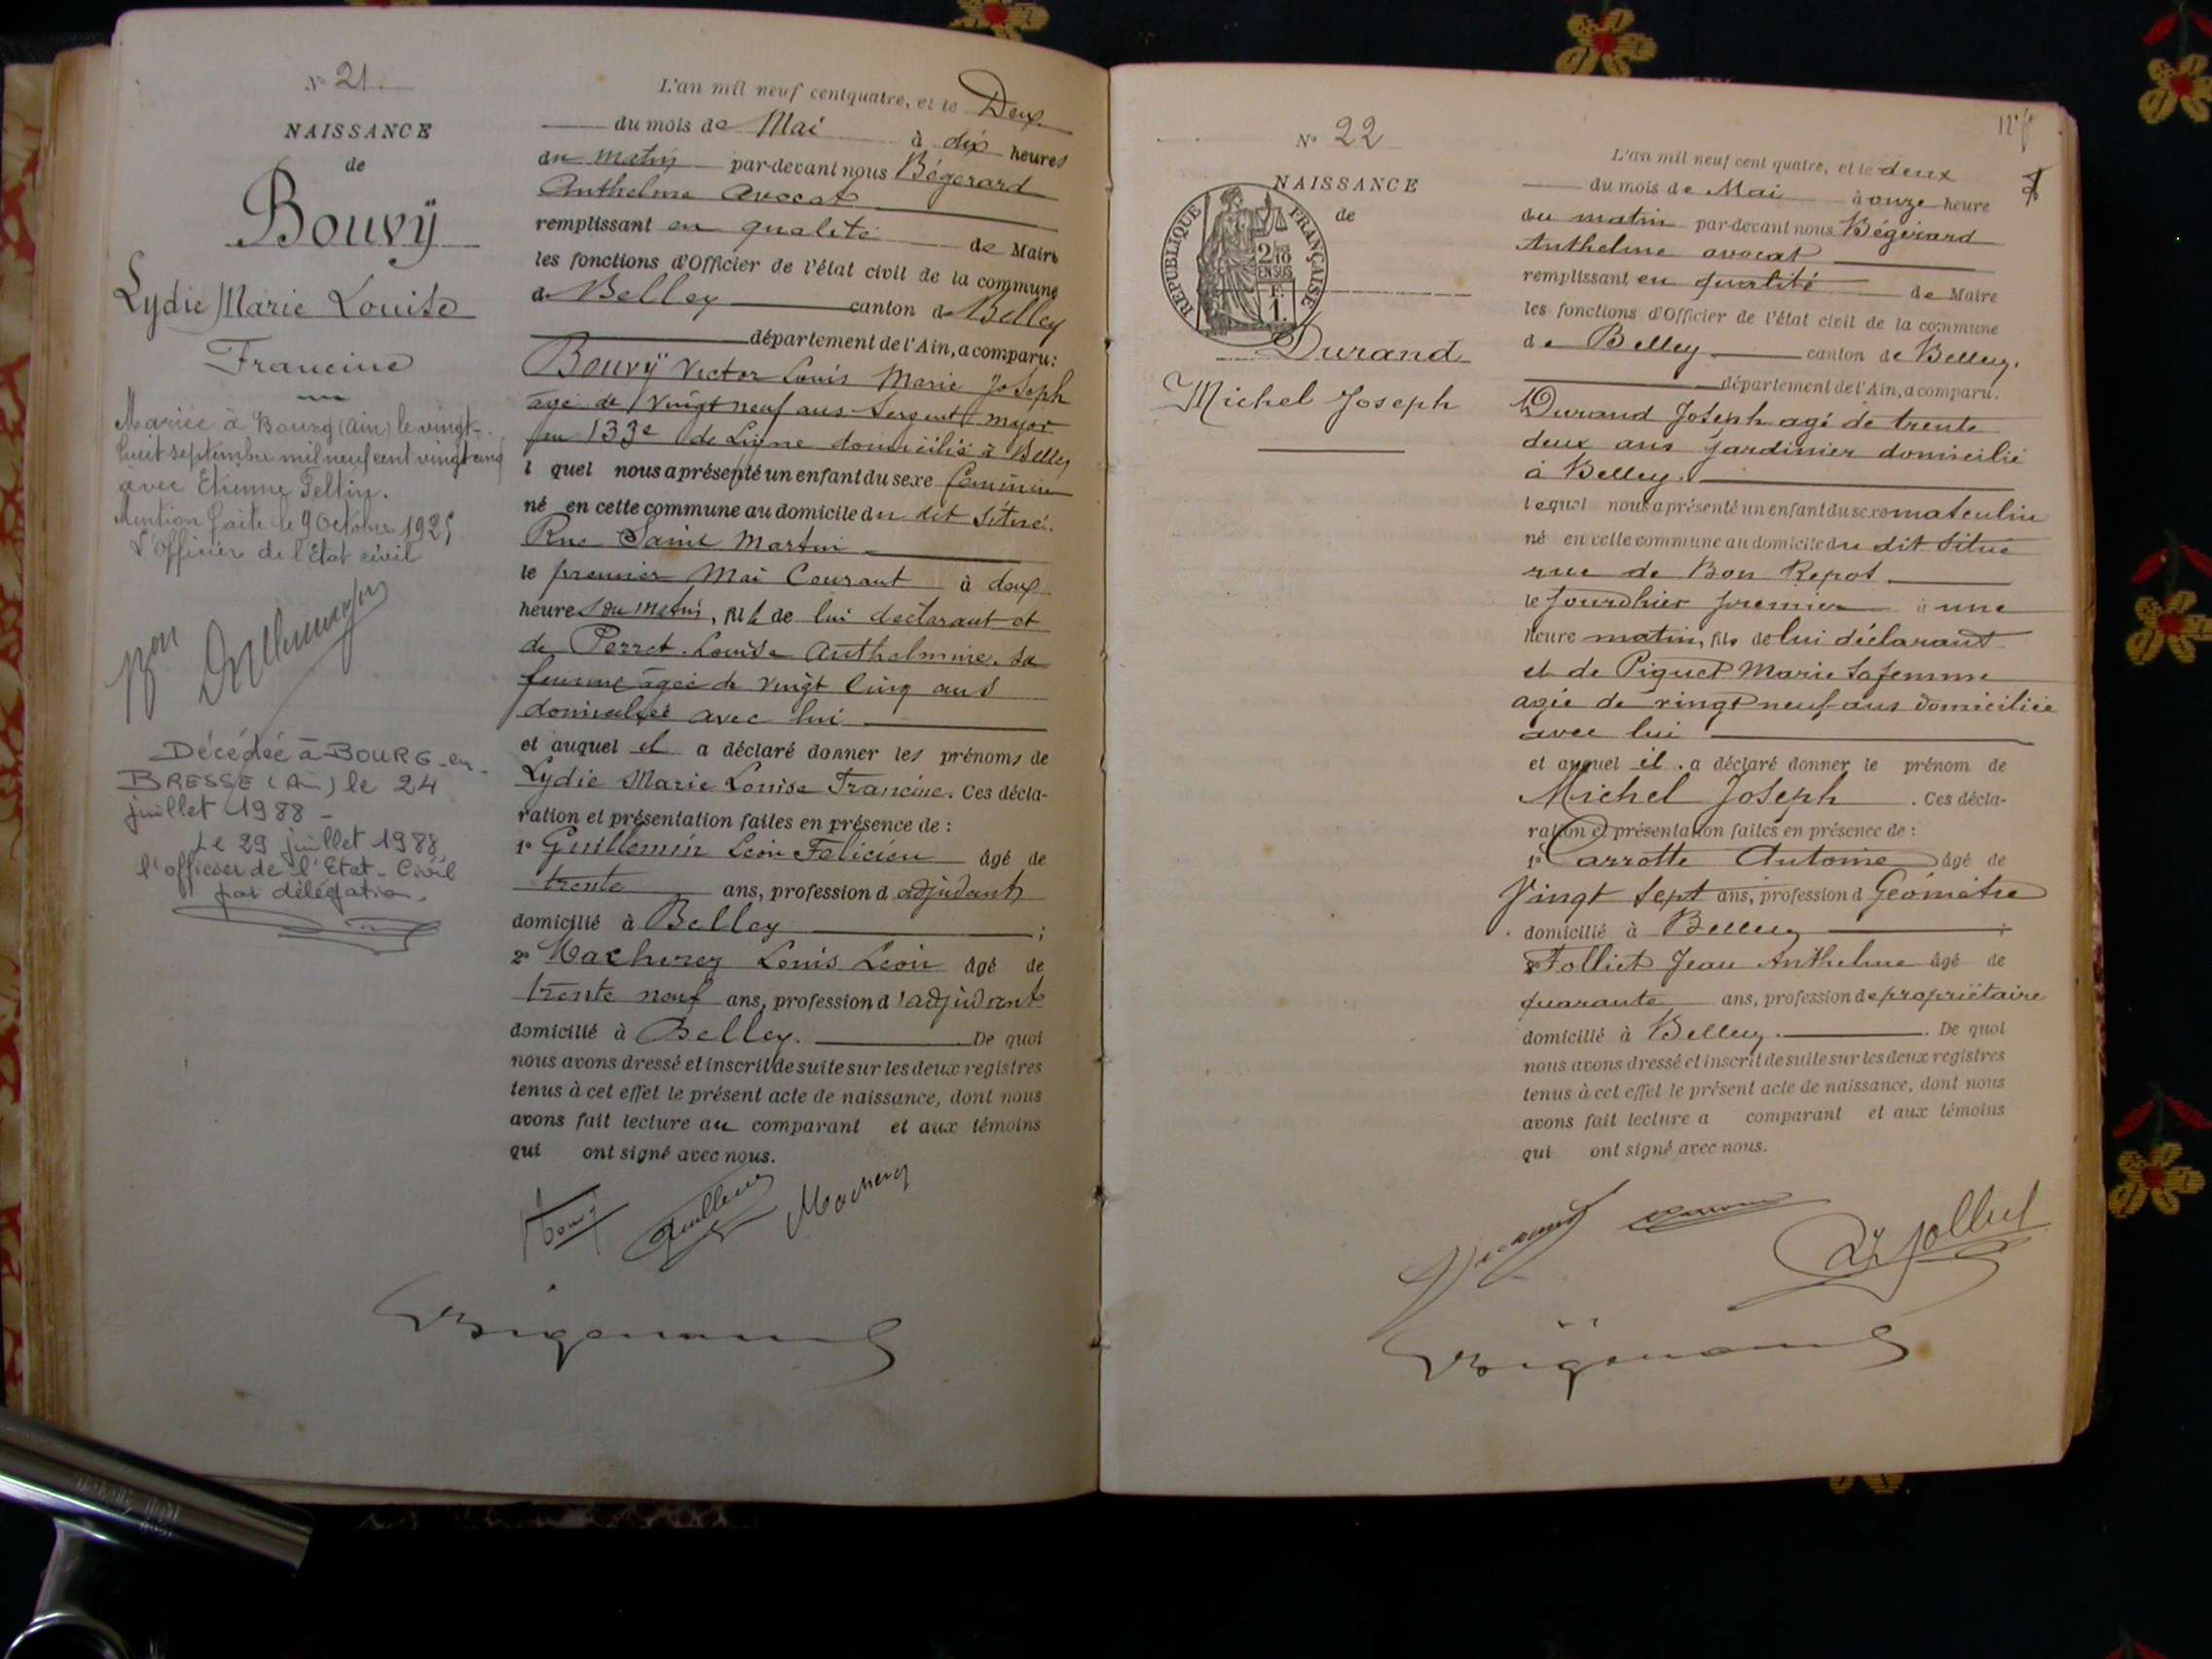 N° 21
NAISSANCE
de
Bouvÿ
Lydie Marie Louise
Francine
Mariée à Bourg (Ain) le vingt-
huit septembre mil neuf cent vingt cinq
avec Etienne Feltin.
Mention faite le 9 Octobre 1925
L'Officier de l'Etat civil
Décédée à BOURG-en-
BRESSE (Ain) le 24
juillet 1988 -
Le 29 juillet 1988
l'officier de l'Etat-Civil
par délégation.
L'an mil neuf cent quatre, et le Deux
du mois de Mai à dix heures
du matin par-devant nous Bégerard
Anthelme avocat
remplissant en qualité de Maire
les fonctions d'Officier de l'état civil de la commune
de Belley canton de Belley
département de l'Ain, a comparu:
Bouvÿ Victor Louis Marie Joseph
agé de vingt neuf ans Sergent major
au 133e de Ligne domicilié à Belley
l quel nous a présenté un enfant du sexe feminin
né en cette commune au domicile du dit situé.
Rue Saint Martin
le premier Mai Courant à deux
heures du matin, fille de lui declarant et
de Perret Louise Anthelmine. sa
femme agée de vingt cinq ans
domiciliée avec lui
et auquel il a déclaré donner les prénoms de
Lydie Marie Louise Francine. Ces décla-
ration et présentation faites en présence de :
1° Guillemin Leon Felicien âgé de
trente ans, profession d adjudant
domicilié à Belley ;
2° Macherez Louis Leon âgé de
trente neuf ans, profession d'adjudant
domicilié à Belley. De quoi
nous avons dressé et inscrit de suite sur les deux registres
tenus à cet effet le présent acte de naissance, dont nous
avons fait lecture au comparant et aux témoins
qui ont signé avec nous.
Macherez
N° 22
NAISSANCE
de
REPUBLIQUE FRANÇAISE
2/10
EN SUS
1F.
Durand
Michel Joseph
L'an mil neuf cent quatre, et le deux
du mois de Mai à onze heure
du matin par-devant nous Bégérard
Anthelme avocat
remplissant en qualité de Maire
les fonctions d'Officier de l'état civil de la commune
de Belley canton de Belley.
département de l'Ain, a comparu.
Durand Joseph agé de trente
deux ans jardinier domicilié
à Belley.
lequel nous a présenté un enfant du sexe masculin
né en cette commune au domicile du dit situé
rue de Bon Repos
le jourdhier premier à une
heure matin, fils de lui déclarant
et de Piquet Marie sa femme
agée de vingt neuf ans domiciliée
avec lui
et auquel il a déclaré donner le prénom de
Michel Joseph. Ces décla-
ration et présentation faites en présence de :
1° Carrotte Antoine âgé de
Vingt sept ans, profession d Géomètre
domicilié à Belley ;
2° Folliet Jean Anthelme âgé de
quarante ans, profession de propriétaire
domicilié à Belley. De quoi
nous avons dressé et inscrit de suite sur les deux registres
tenus à cet effet le présent acte de naissance, dont nous
avons fait lecture a comparant et aux témoins
qui ont signé avec nous.